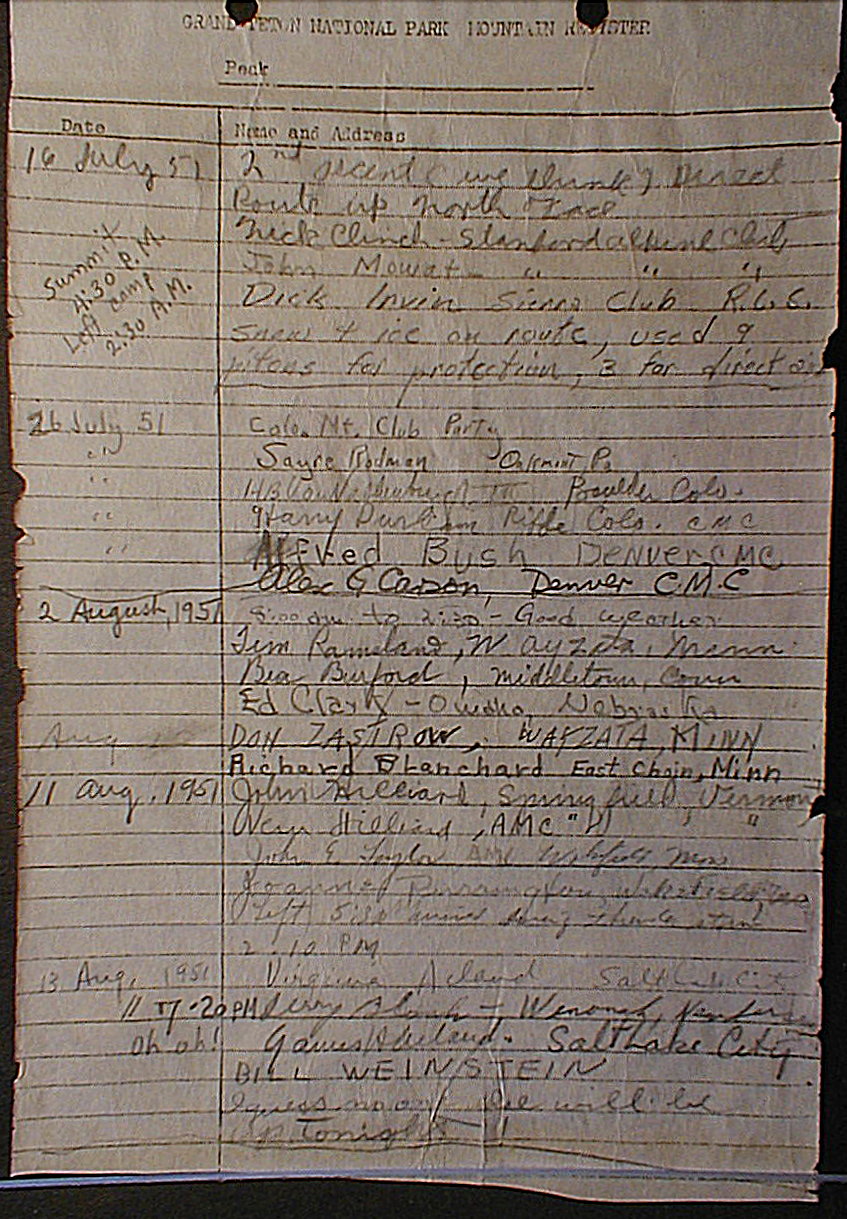 GRAND TETON NATIONAL PARK MOUNTAIN REGISTER
Peak
Date Name and Address
16 July 51 2nd ascent (we think) Direct
Route up North Face
Nick Clinch - Stanford Alpine Club
John Mowat " " "
Summit
4:30 P.M.
Left camp
2:30 A.M.
Dick Irvin Sierra Club R.C.S.
snow & ice on route, used 9
pitons for protection, 3 for direct aid
26 July 51 Colo. Mt. Club Party
" Sayre Rodman Oakmont, Pa
" Boulder Colo.
" Harry Durham Rifle Colo. CMC
" Alfred Bush DENVER CMC
Alex G Carson, Denver C.M.C
2 August, 1951 8:00 am to 2:30 - Good weather
Tim Rameland, Wayzata, Minn.
Bea Burford, Middletown, Conn
Ed Clark - Omaha, Nebraska
Aug DON ZASTROW, WAYZATA, MINN
Richard Blanchard East Chain, Minn
11 Aug. 1951 John Hilliard, Springfield, Vermont
Hilliard, AMC " "
John E. Taylor AMC Wakefield, Mass
Joanne Wakefield, Mass
Left 5:30
2:10 PM
13 Aug, 1951 Virginia Salt Lake City
PM Jerry
Oh oh! Salt Lake City
BILL WEINSTEIN
I guess no one else will be
up Tonight !!